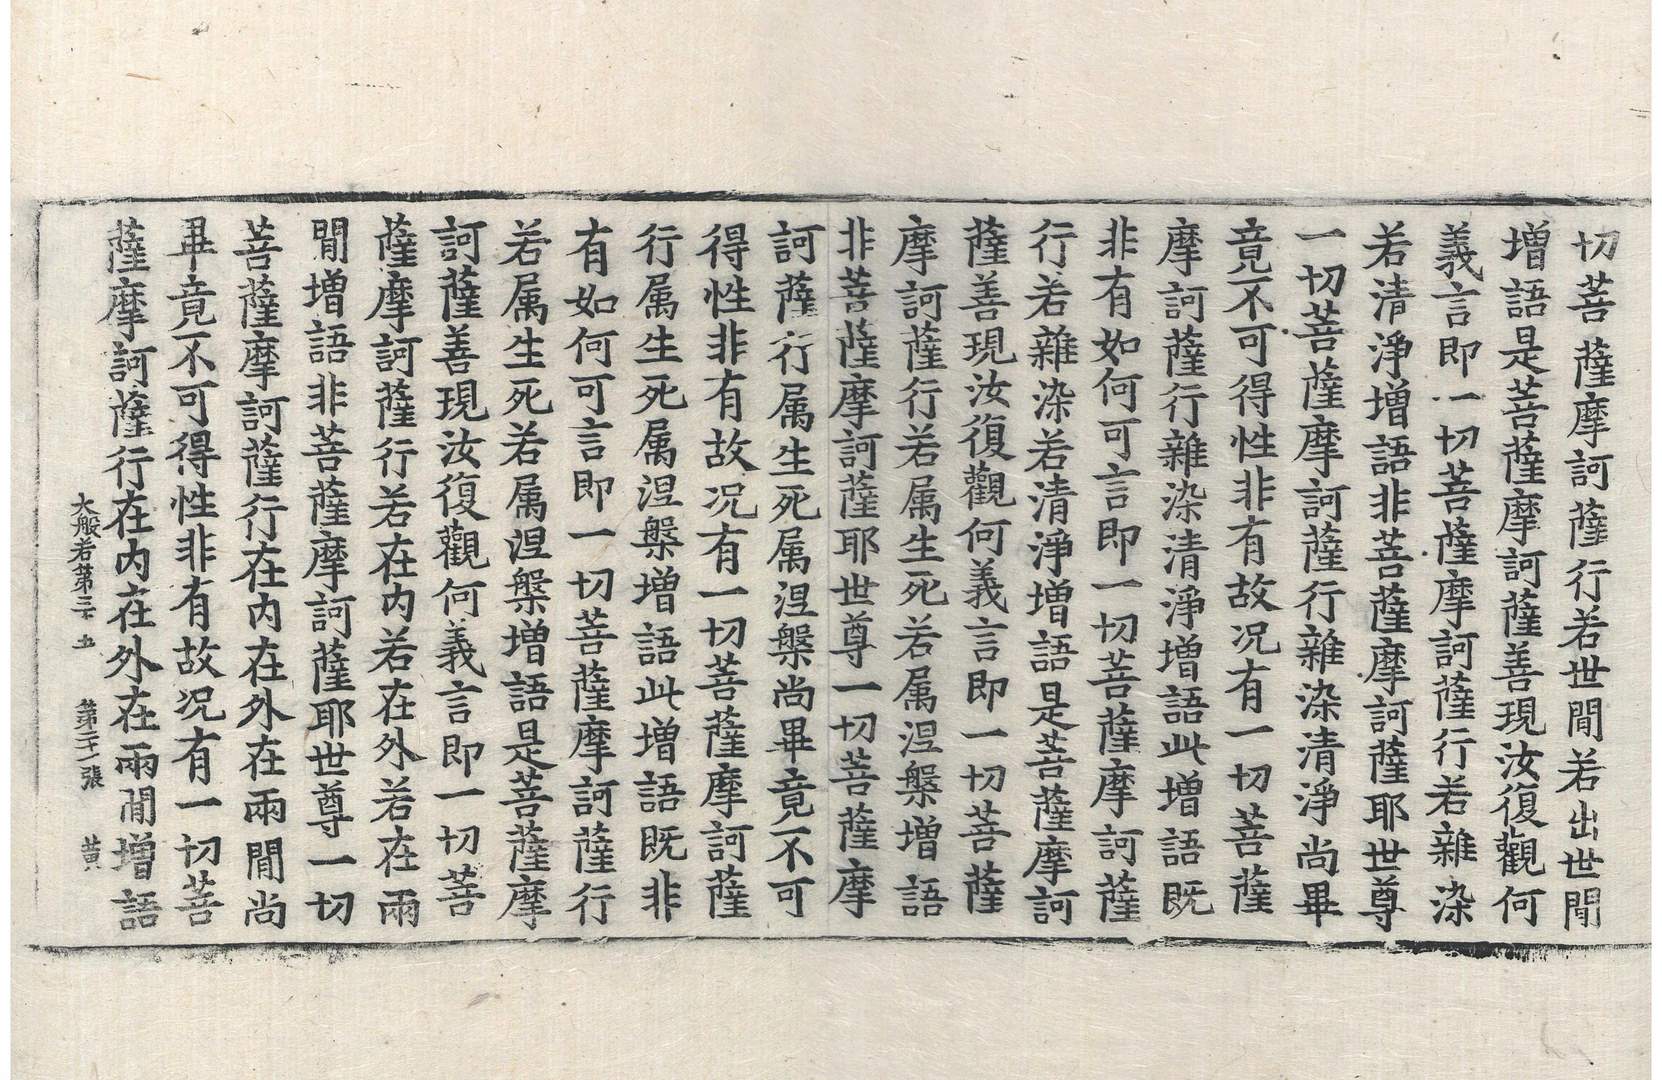 切菩薩摩訶薩行若世間若出世間
增語是菩薩摩訶薩善現汝復觀何
義言即一切菩薩摩訶薩行若雜染
若清淨增語非菩薩摩訶薩耶世尊
一切菩薩摩訶薩行雜染清淨尚畢
竟不可得性非有故况有一切菩薩
摩訶薩行雜染清淨增語此增語既
非有如何可言即一切菩薩摩訶薩
行若雜染若清淨增語是菩薩摩訶
薩善現汝復觀何義言即一切菩薩
摩訶薩行若属生死若属涅槃增語
非菩薩摩訶薩耶世尊一切菩薩摩
訶薩行属生死属涅槃尚畢竟不可
得性非有故况有一切菩薩摩訶薩
行属生死属涅槃增語此增語既非
有如何可言即一切菩薩摩訶薩行
若属生死若属涅槃增語是菩薩摩
訶薩善現汝復觀何義言即一切菩
薩摩訶薩行若在内若在外若在兩
間增語非菩薩摩訶薩耶世尊一切
菩薩摩訶薩行在内在外在兩間尚
畢竟不可得性非有故况有一切菩
薩摩訶薩行在内在外在兩間增語
大般若第三十五 第二十一張 黄